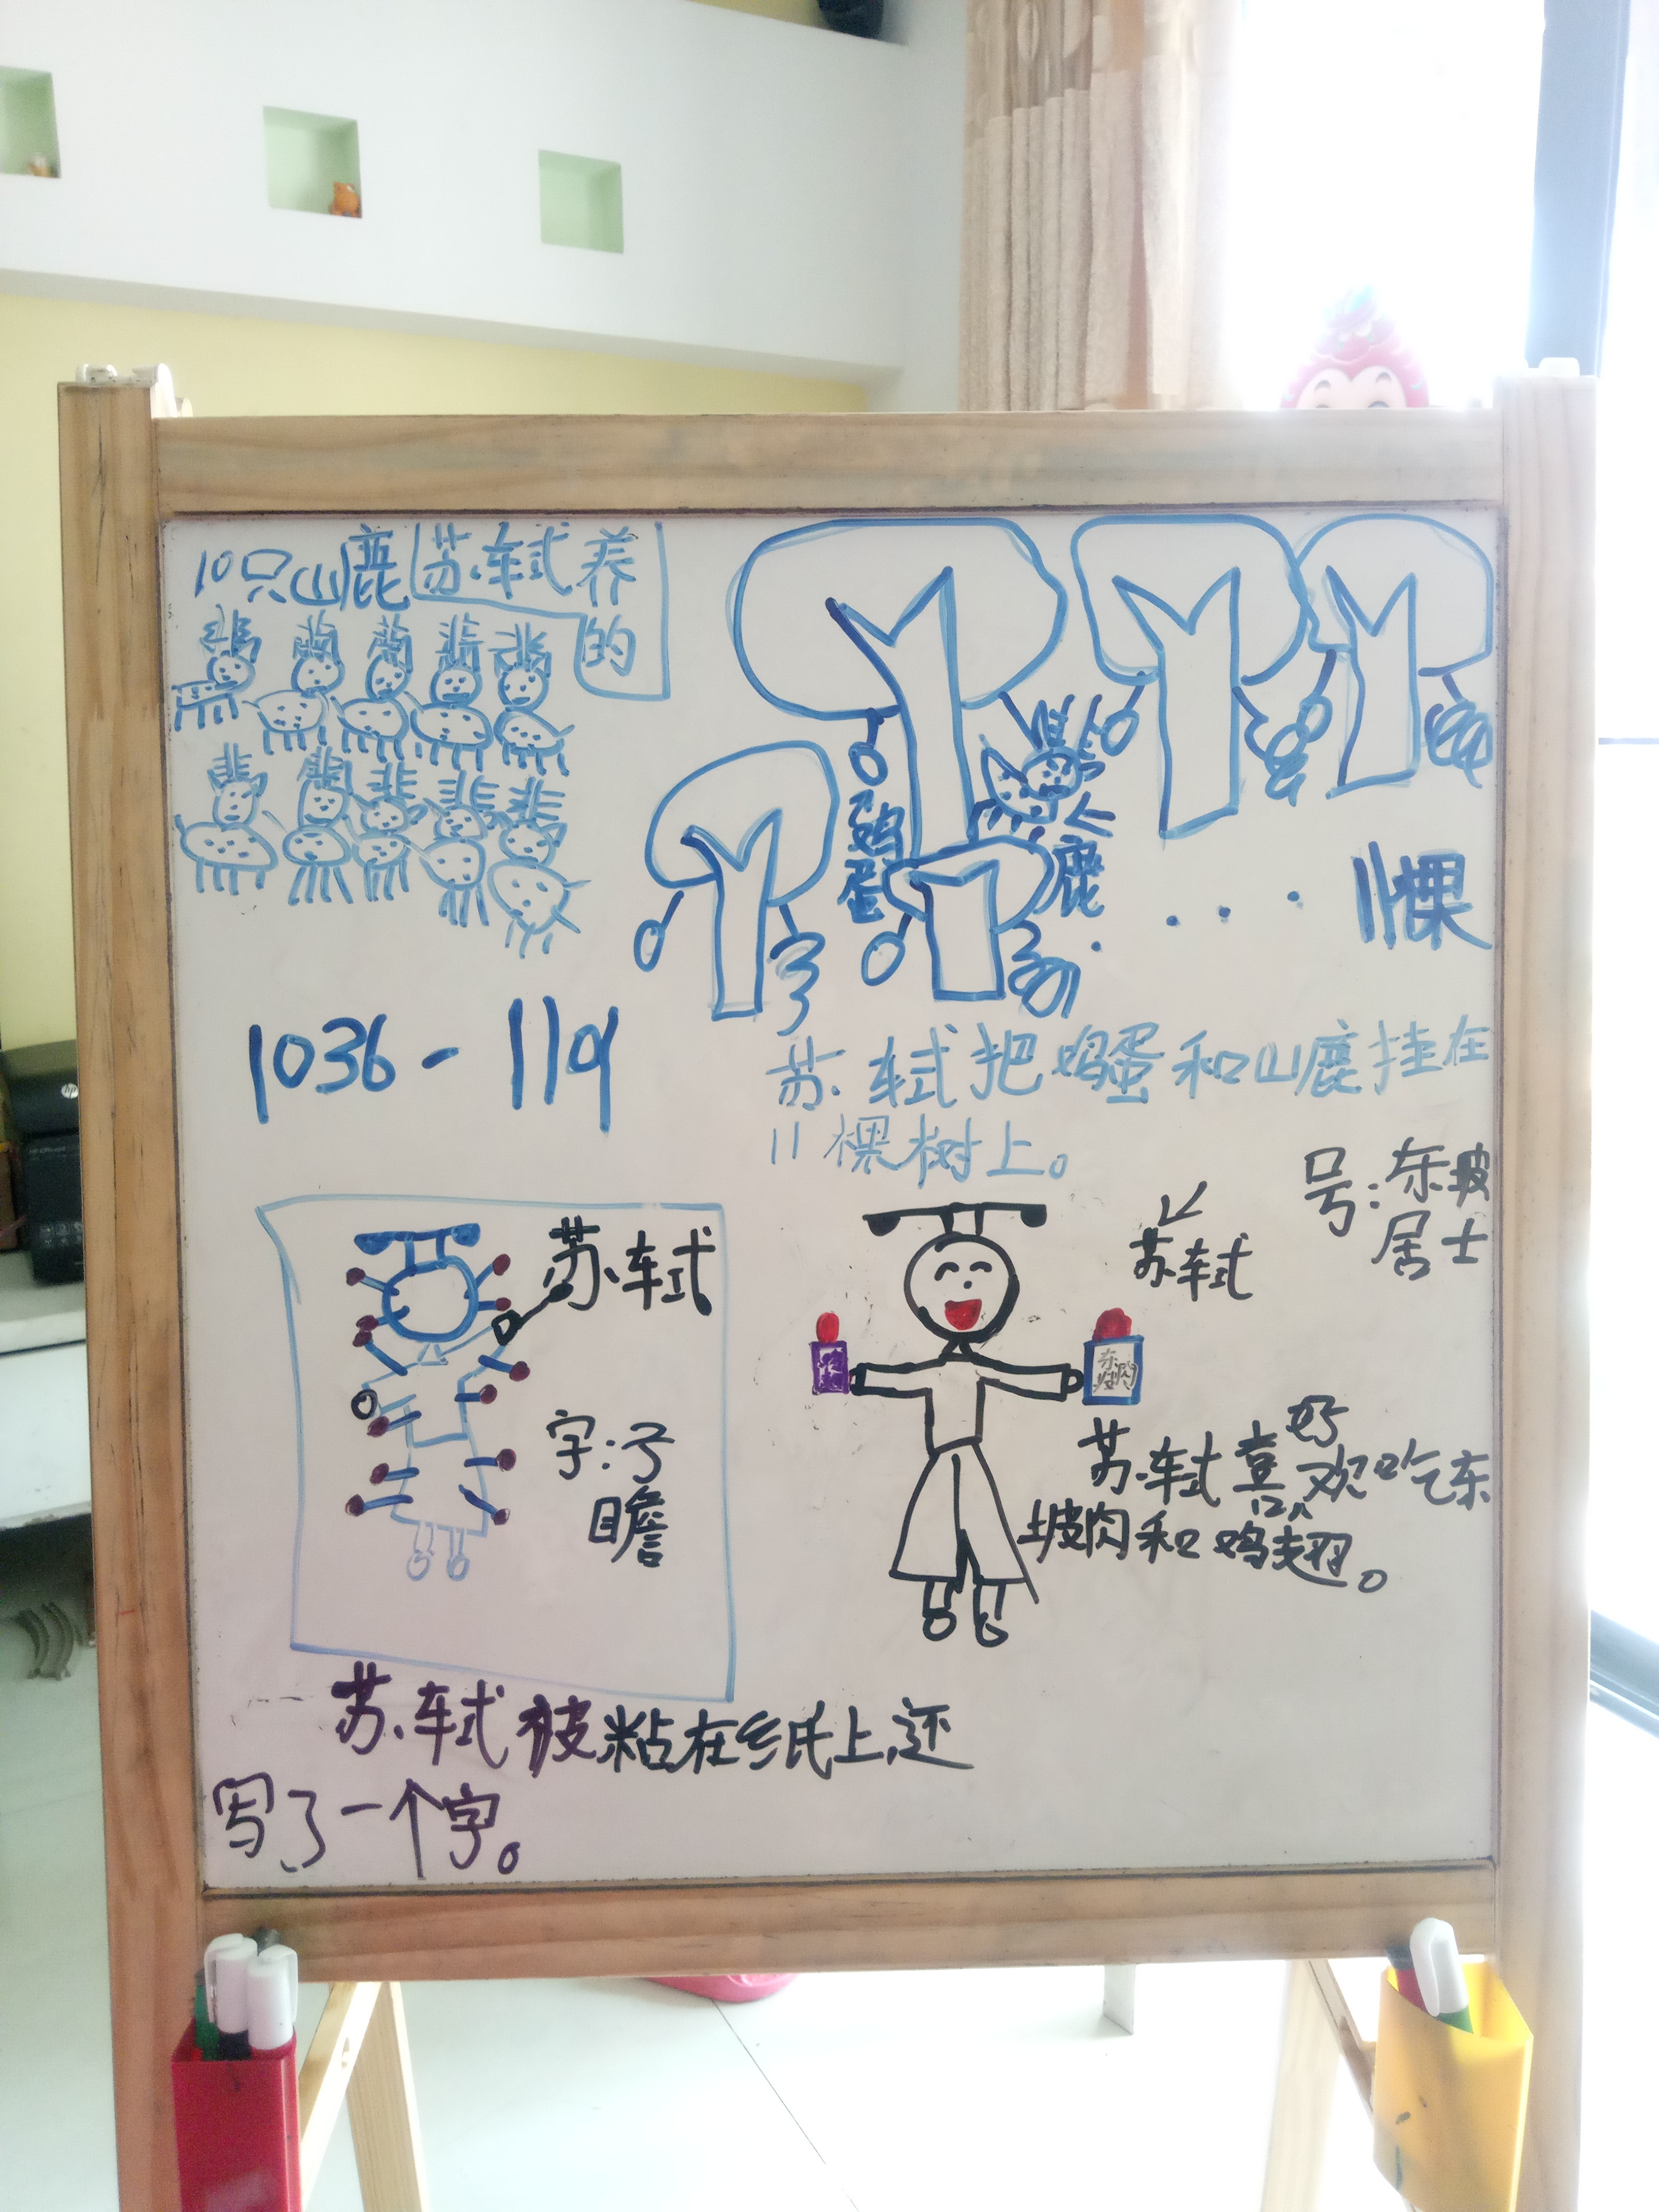 10只山鹿苏轼养
的
鸡
蛋
鹿
11棵
1036-1101
苏轼把鸡蛋和山鹿挂在
11棵树上。
号:东坡
居士
苏轼
苏轼
字:子
瞻
东
坡肉
好
苏轼喜欢吃东
坡肉和鸡翅。
苏轼被粘在纸上,还
写了一个字。
hp